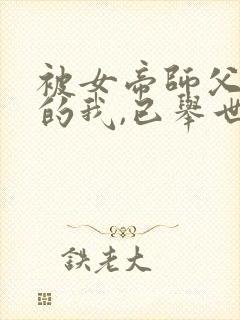 被女帝師父
的我,已舉世
鉄老大